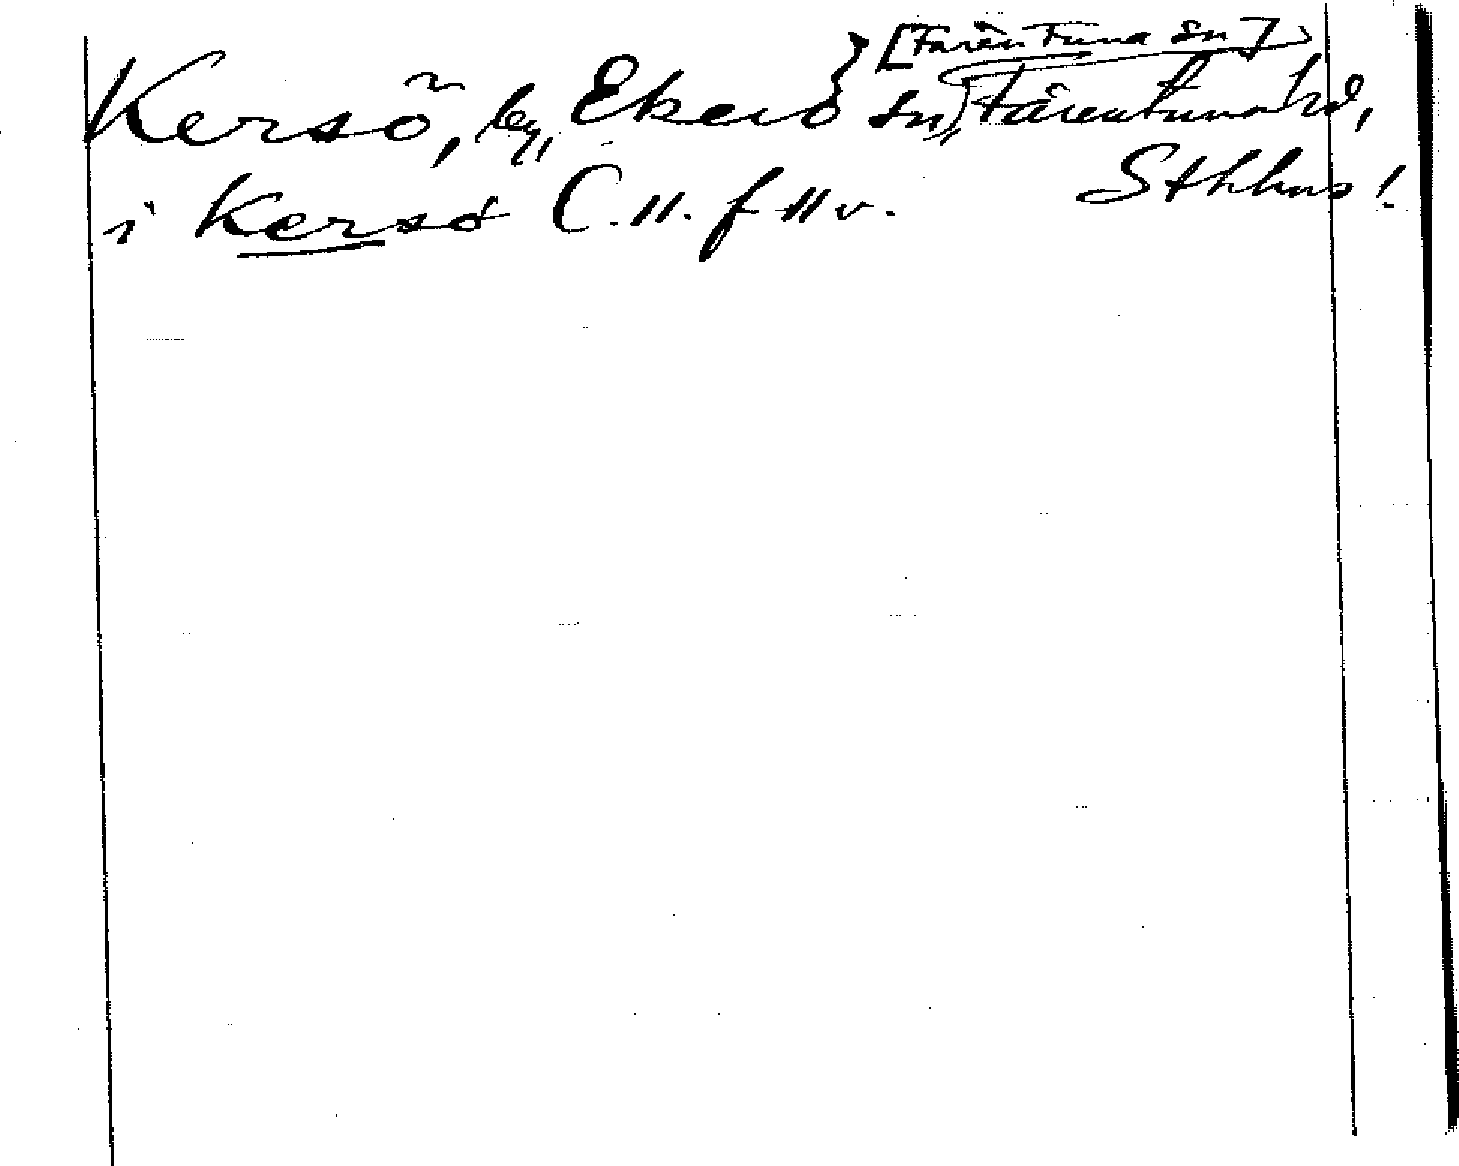 [Färentuna sn]
Kersö, by, Ekerö sn, Färentuna hd,
i Kersö C. 11. f 11 v. Sthlms l.